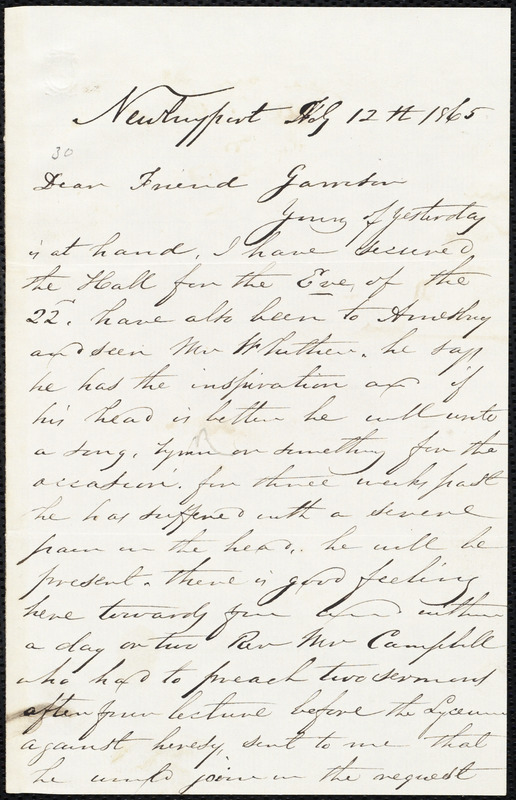 Newburyport Feby 12th 1865
30
Dear Friend Garrison
Yours of yesterday
is at hand. I have secured
the Hall for the Eve, of the
22d. have also been to Amesbury
and seen Mr Whittier. he says
he has the inspiration and if
his head is better he will write
a song, hymn or something for the
occasion. for three weeks past
he has suffered with a severe
pain in the head. he will be
present. there is good feeling
here towards you and within
a day or two Rev Mr Campbell
who had to preach two sermons
after your lecture before the Lyceum
against heresy, sent to me that
he would join in the request